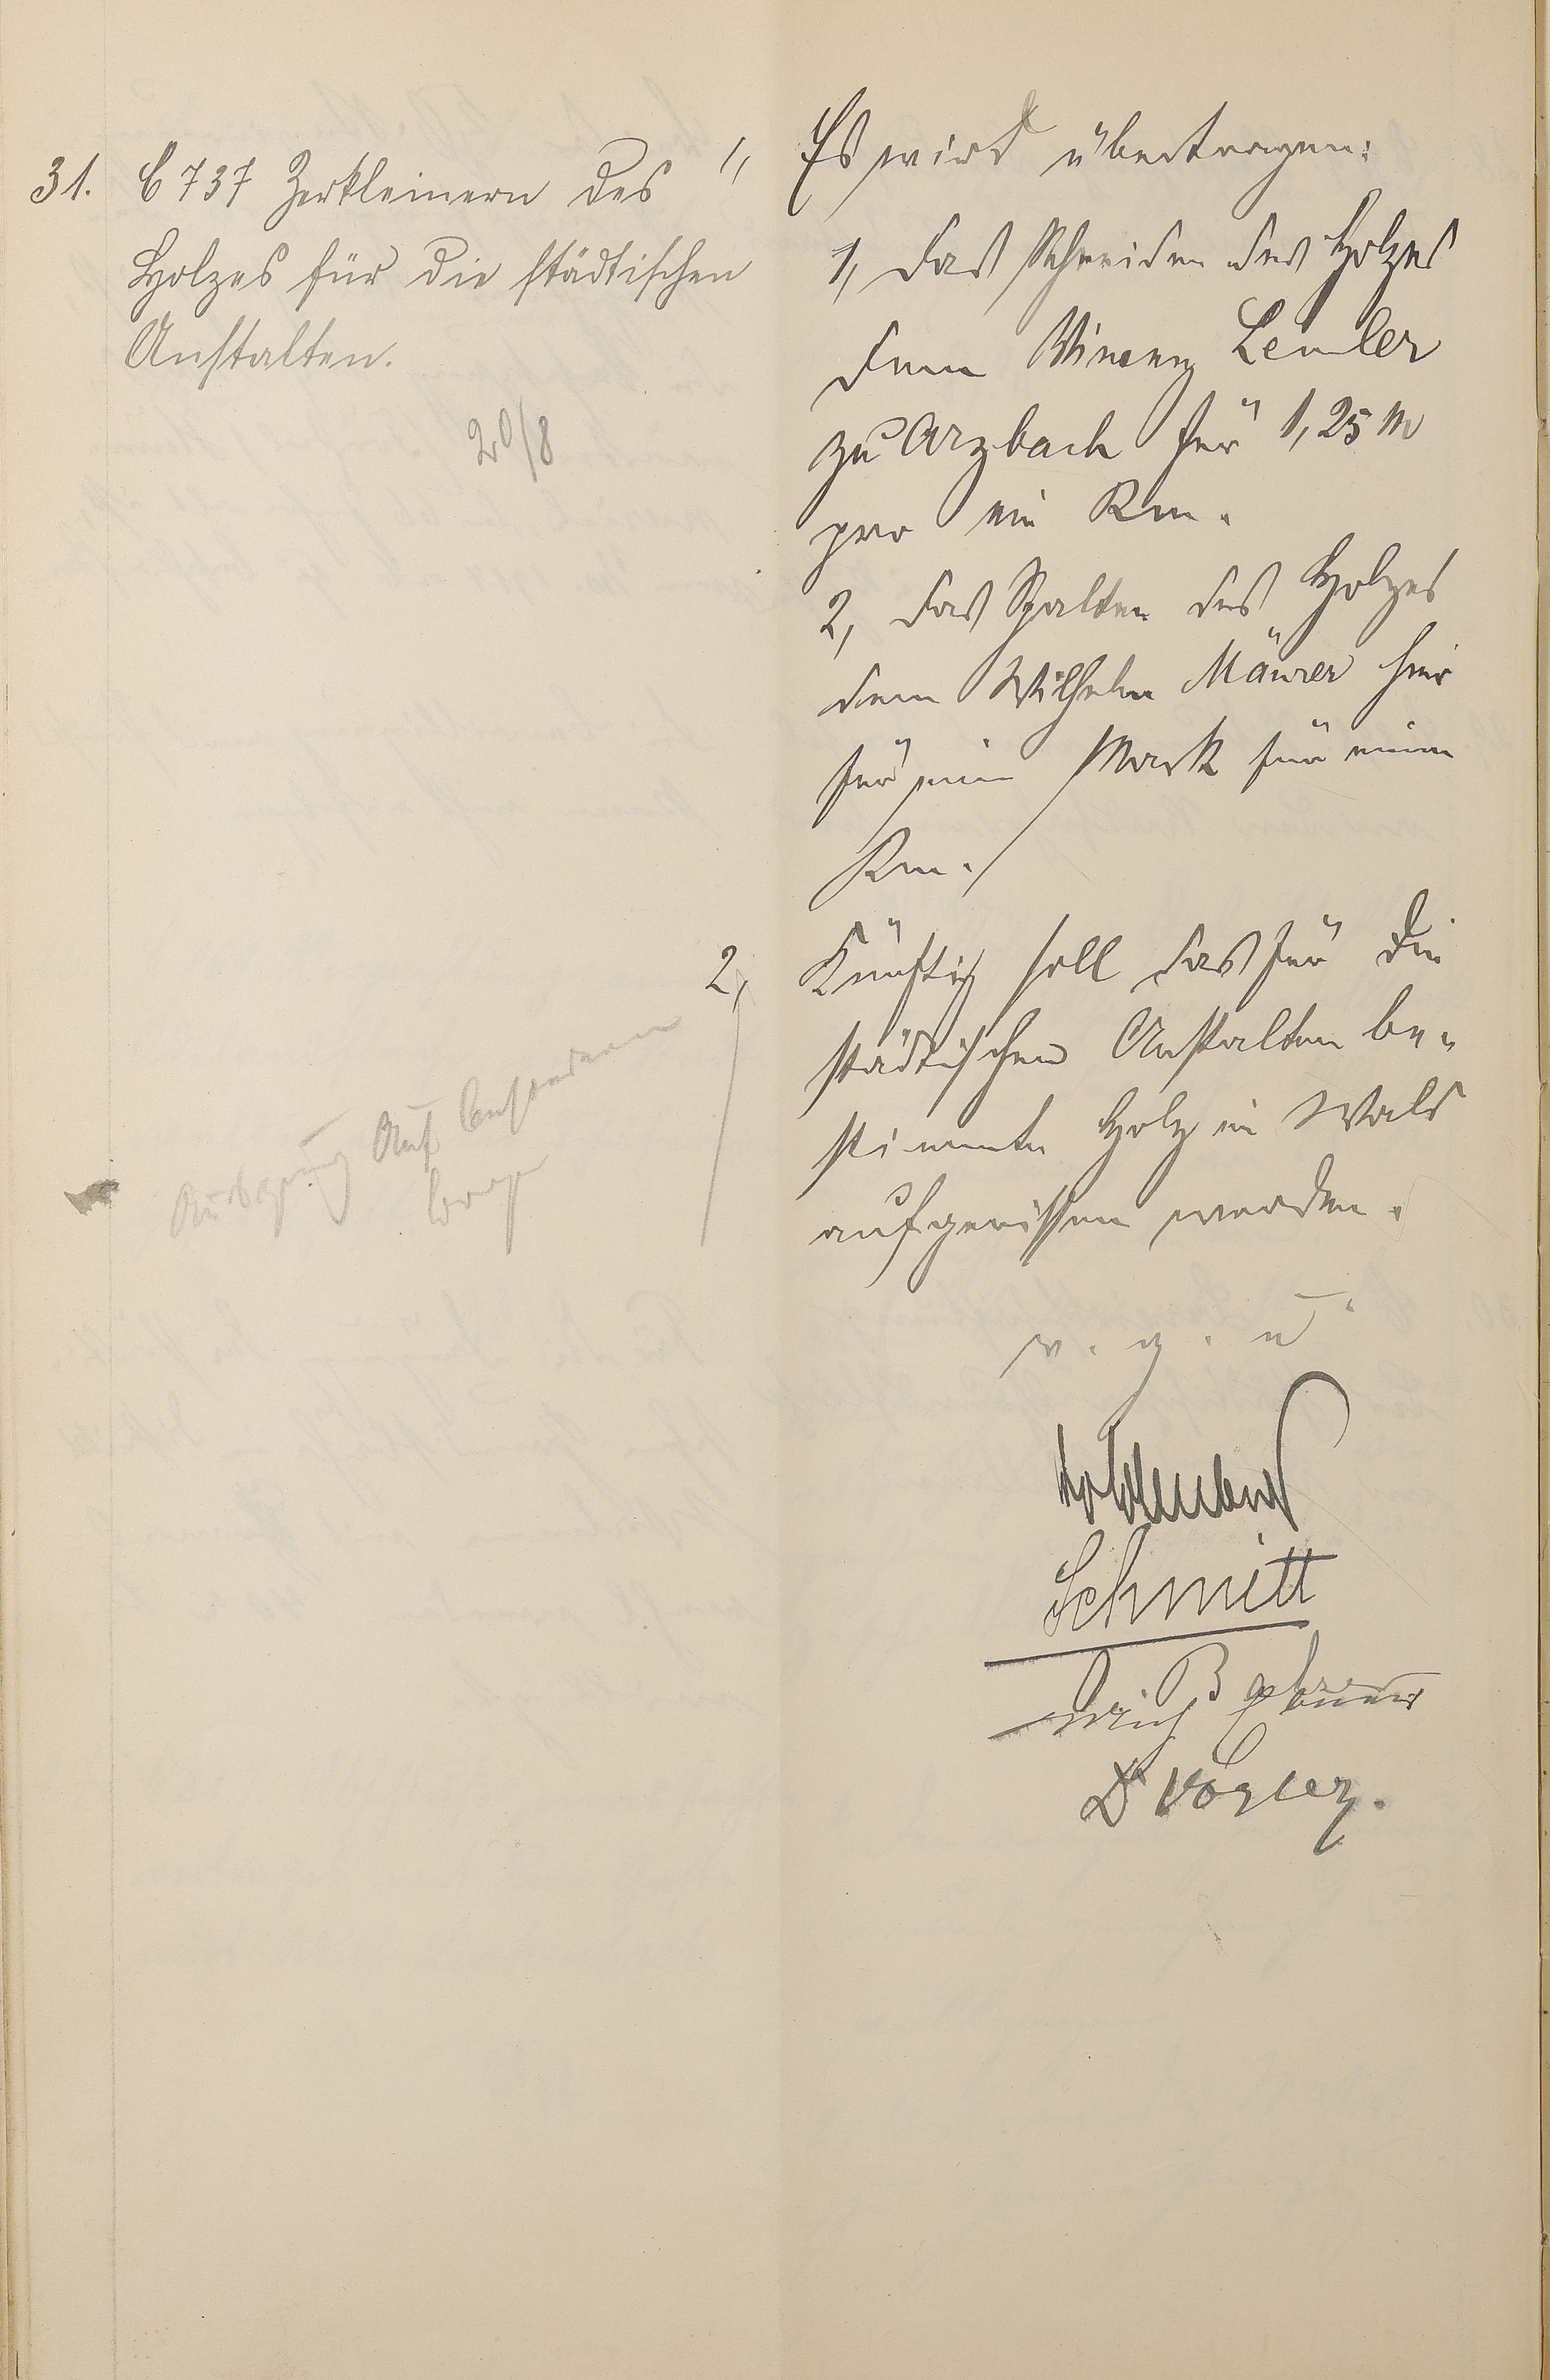 31. C 737 Zerkleinern des
Holzes für die städtischen
Anstalten.
20/8
1, Es wird übertragen:
1, das Schneiden des Holzes
dem Vincenz Lemler
zu Arzbach für 1,25 M
pro ein Rm.
2, das Spalten des Holzes
dem Wilhelm Mäurer hier
für eine Mark für einen
Rm.
2, Künftig soll das für die
städtischen Anstalten be-
stimmte Holz im Wald
aufgerissen werden.
Auf besonderem
v. g. u
Schmitt
Dr Vogler.